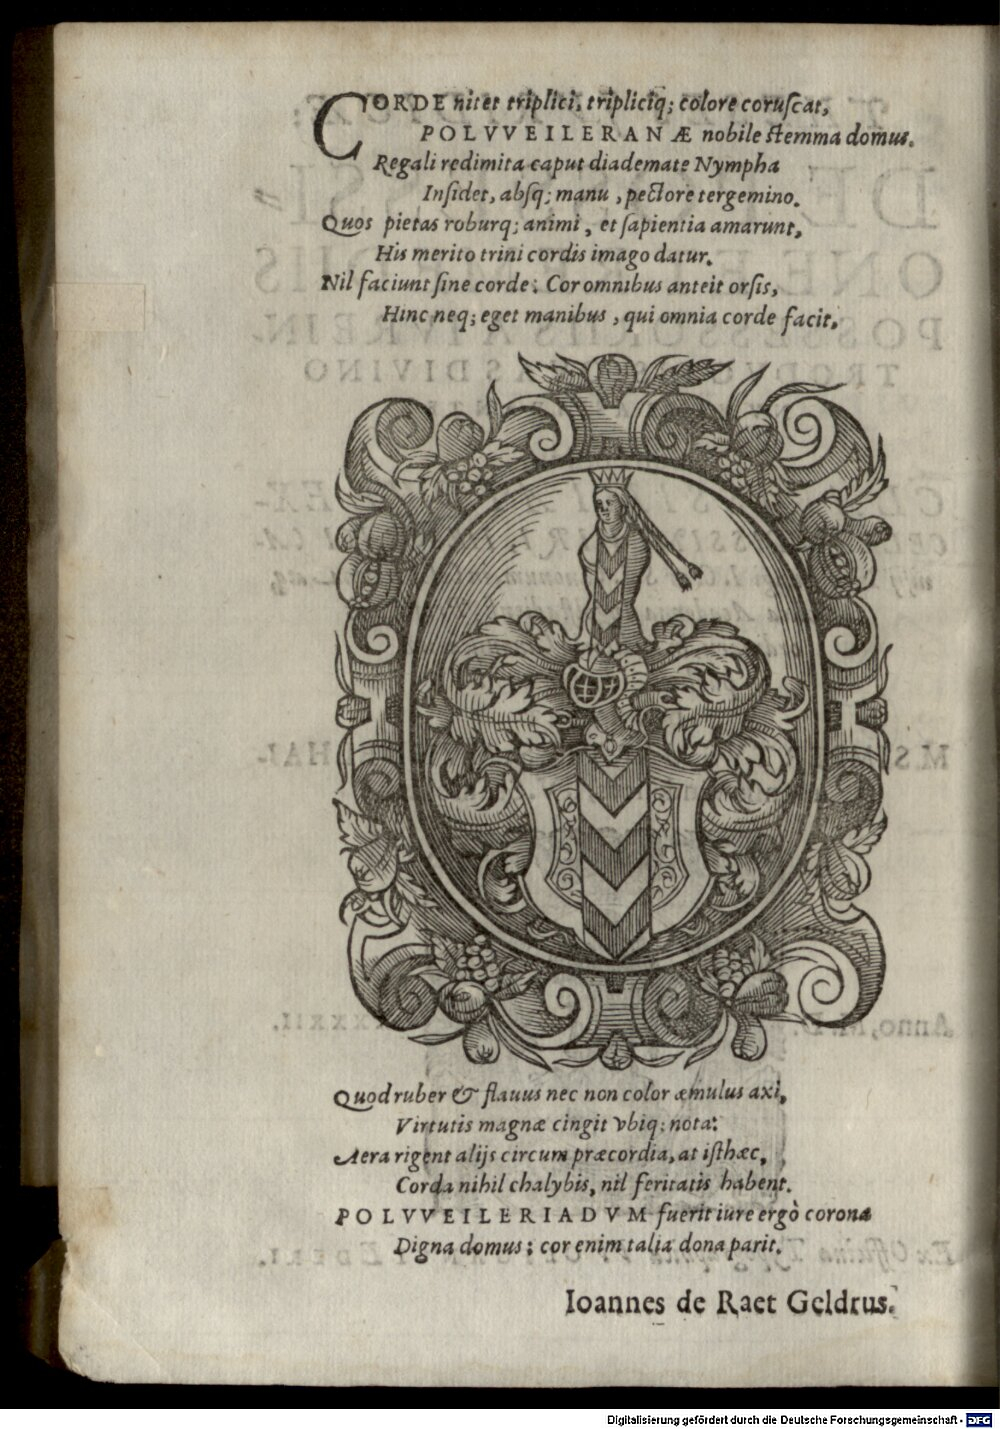 CORDE nitet triplici, tripliciq; colore coruſcat,
POLVVEILERANÆ nobile ſtemma domus.
Regali redimita caput diademate Nympha
Inſidet, abſq; manu, pectore tergemino.
Quos pietas roburq; animi, et ſapientia amarunt,
His merito trini cordis imago datur.
Nil faciunt ſine corde: Cor omnibus anteit orſis,
Hinc neq; eget manibus, qui omnia corde facit.
Quod ruber & flauus nec non color æmulus axi,
Virtutis magnæ cingit vbiq; nota:
Aera rigent alijs circum præcordia, at iſthæc,
Corda nihil chalybis, nil feritatis habent.
POLVVEILERIADVM fuerit iure ergò corona
Digna domus; cor enim talia dona parit.
Ioannes de Raet Geldrus.
Digitalisierung gefördert durch die Deutsche Forschungsgemeinschaft - DFG